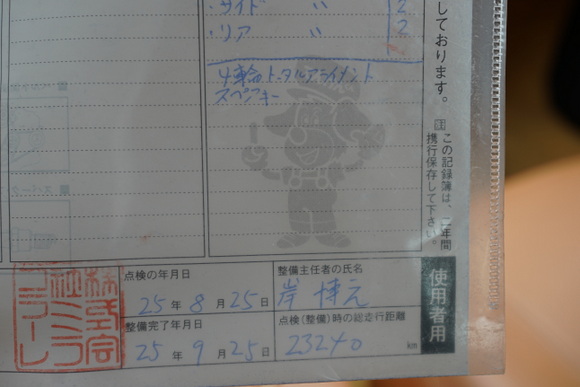 ・サイド 〃 2
・リア 〃 2
4輪トータルアライメント
スペアキー
しております。
注 この記録簿は、二年間
携行保存して下さい。
点検の年月日
25年8月25日
整備主任者の氏名
岸 博之
整備完了年月日
25年9月25日
点検(整備)時の総走行距離
23240 km
使用者用
株式会
社ミラ